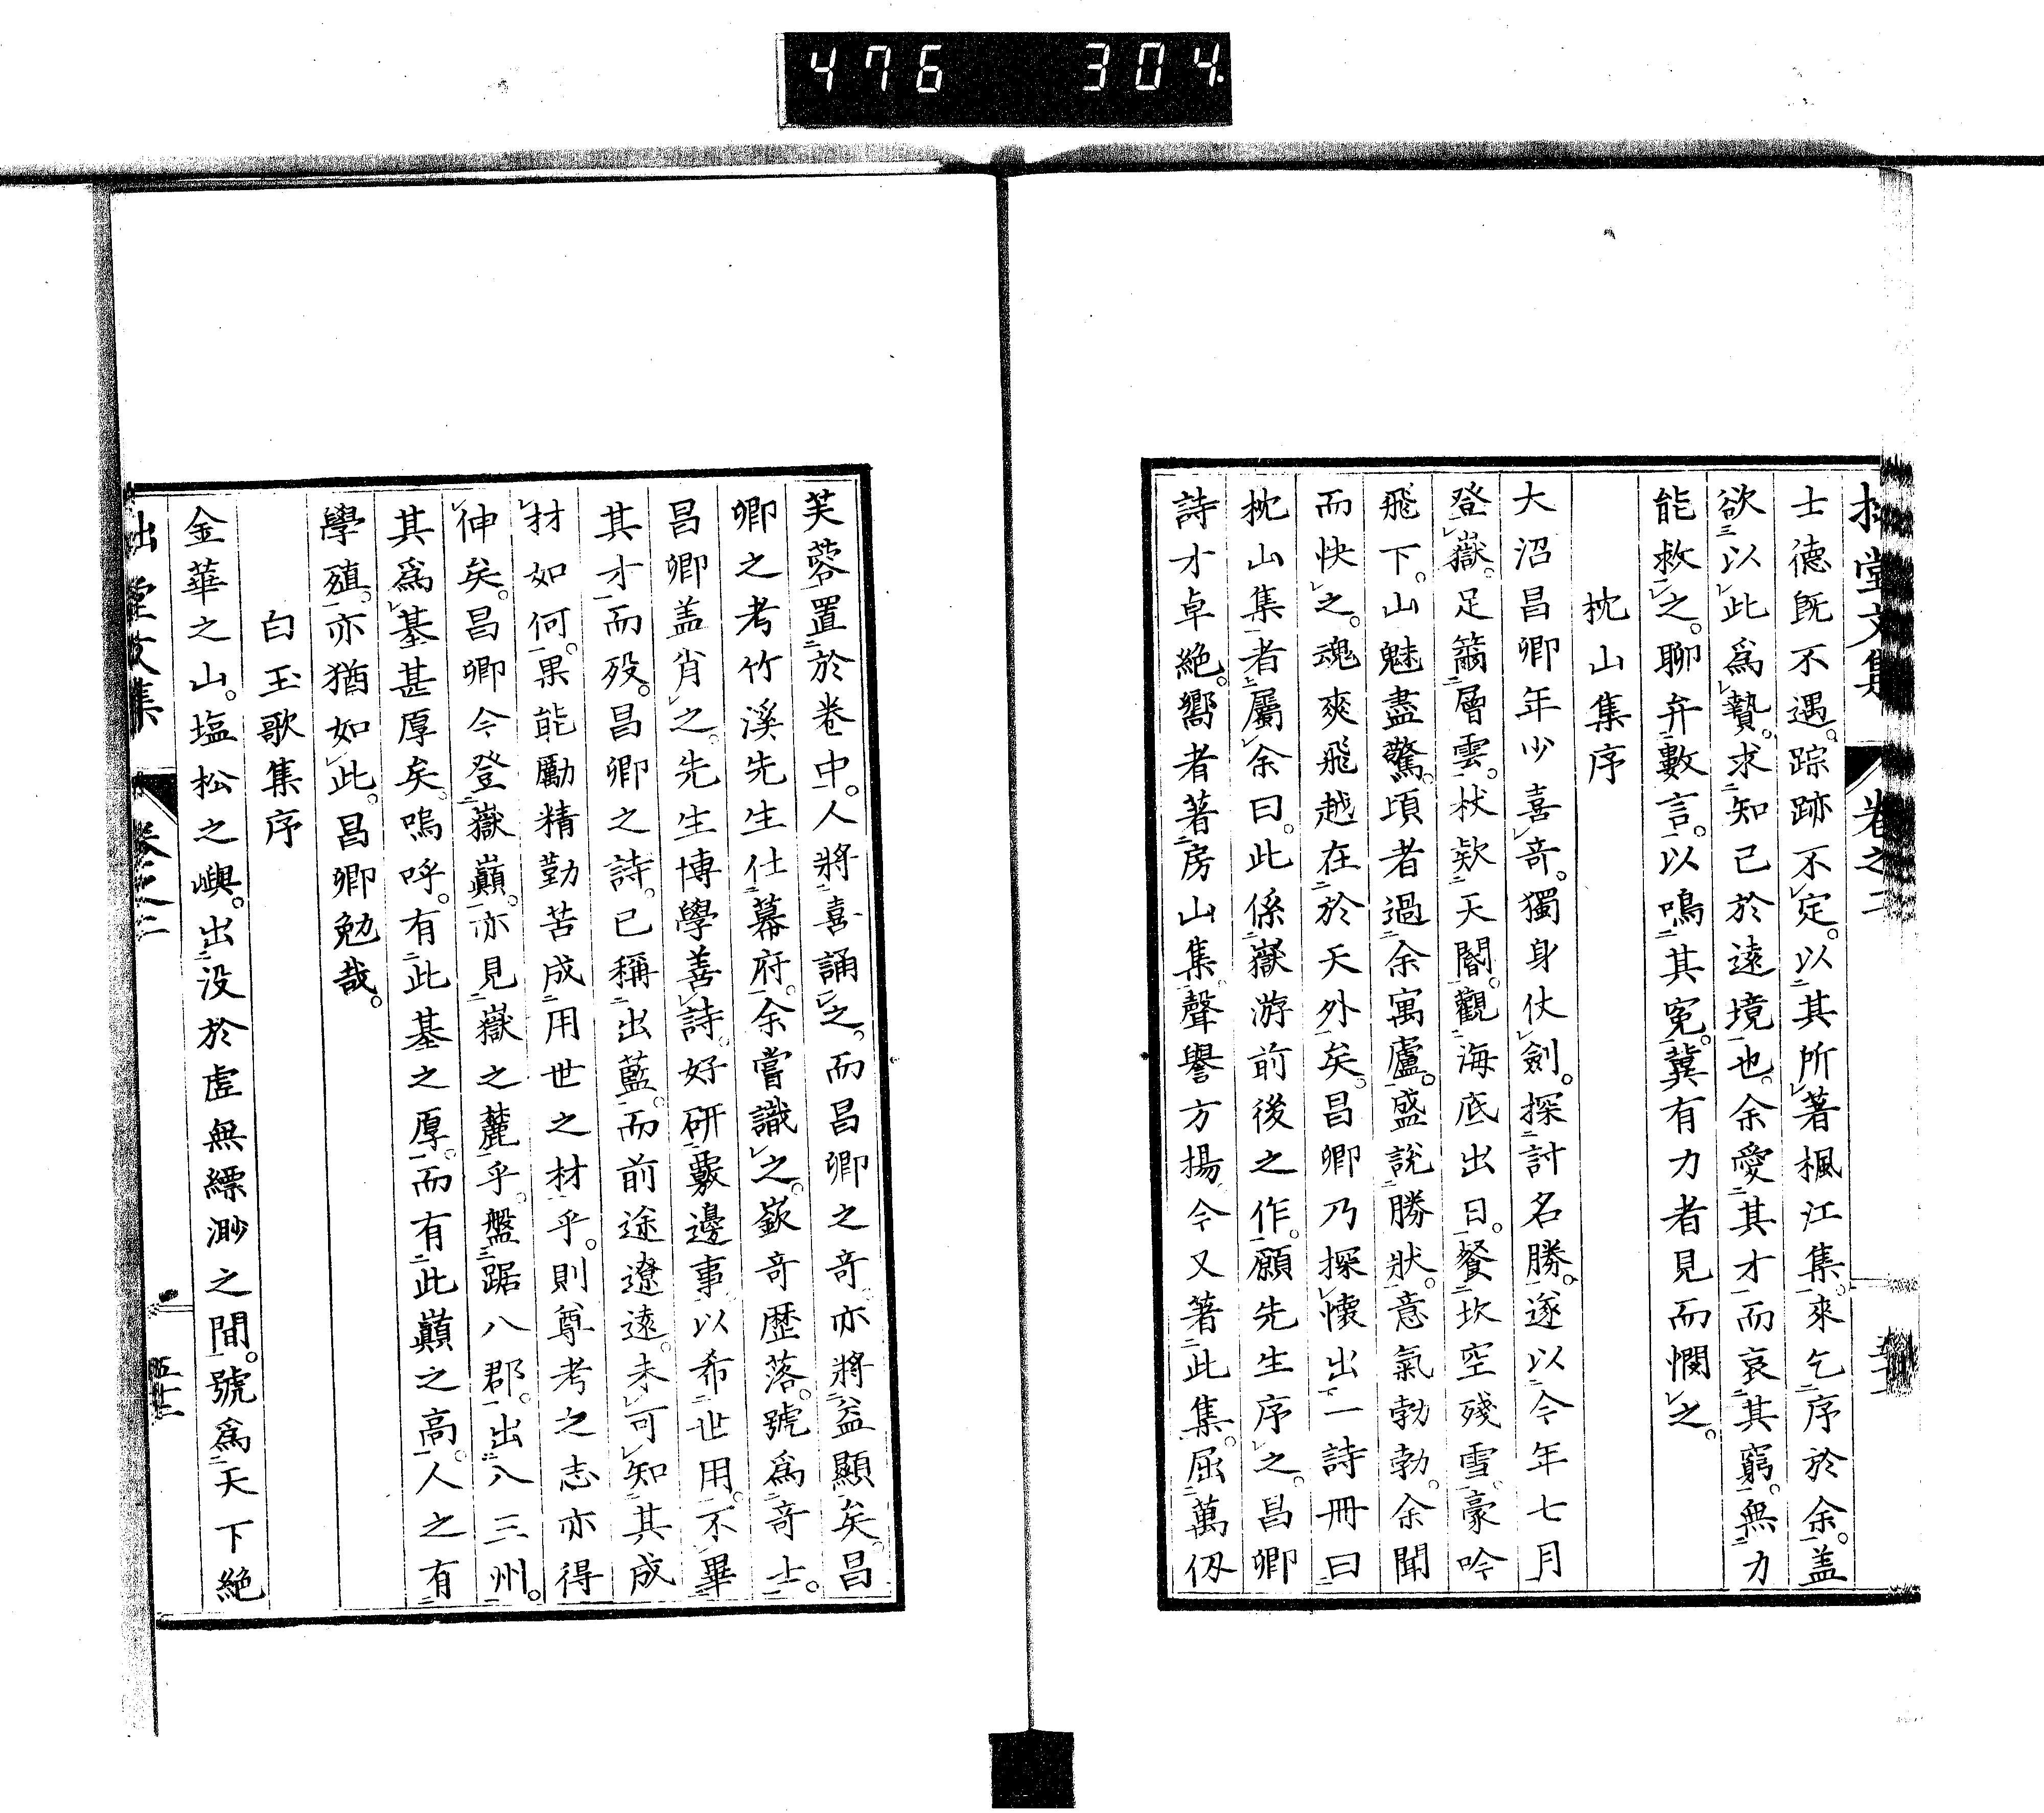 476 304.
拙堂文集 卷之二
士德旣不遇。踪跡不定。以其所著楓江集。來乞序於余。盖
欲以此爲贄。求知己於遠境也。余愛其才而哀其窮。無力
能救之。聊弁數言。以鳴其寃。冀有力者見而憫之。
枕山集序
大沼昌卿年少喜奇。獨身仗劍。探討名勝。遂以今年七月
登嶽。足籋層雲。杖欵天閽。觀海底出日。餐坎空殘雪。豪吟
飛下。山魅盡驚。頃者過余寓廬。盛說勝狀。意氣勃勃。余聞
而快之。魂爽飛越在於天外矣。昌卿乃探懷出一詩冊曰
枕山集者。屬余曰。此係嶽游前後之作。願先生序之。昌卿
詩才卓絶。嚮者著房山集。聲譽方揚。今又著此集。屈萬仭
芙蓉置於卷中。人將喜誦之。而昌卿之奇。亦將益顯矣。昌
卿之考竹溪先生仕幕府。余嘗識之。嶔奇歷落。號爲奇士。
昌卿盖肖之。先生博學善詩。好研覈邊事。以希世用。不畢
其才而歿。昌卿之詩。已稱出藍。而前途遼遠。未可知其成
材如何。果能勵精勤苦成用世之材乎。則尊考之志亦得
伸矣。昌卿今登嶽巔。亦見嶽之麓乎。盤踞八郡。出八三州。
其爲基甚厚矣。嗚呼。有此基之厚。而有此巔之高。人之有
學殖。亦猶如此。昌卿勉哉。
白玉歌集序
金華之山。塩松之嶼。出没於虛無縹渺之間。號爲天下絶
拙堂文集 卷之二 五十二